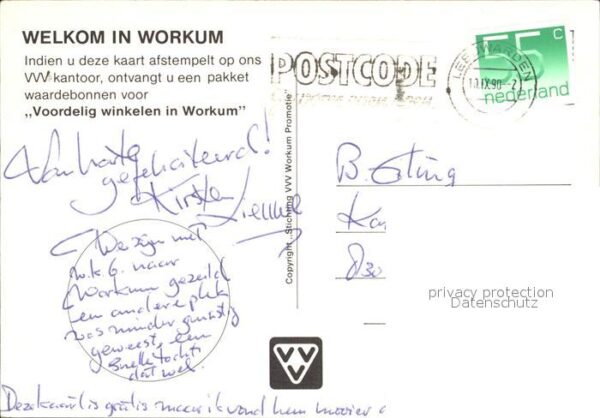 WELKOM IN WORKUM
Indien u deze kaart afstempelt op ons
VVV-kantoor, ontvangt u een pakket
waardebonnen voor
„Voordelig winkelen in Workum"
POSTCODE
LEEUWARDEN
IX.90
55 c
nederland
Van harte
gefeliciteerd!
Kirsten
We zijn met
w.k 6. naar
Workum gezeild
een andere plek
was minder gunstig
geweest, een
snelle tocht
dat wel.
Deze kaart is gratis maar ik vond hem mooier
Copyright „Stichting VVV Workum Promotie"
B.
Ka
830
privacy protection
Datenschutz
VVV